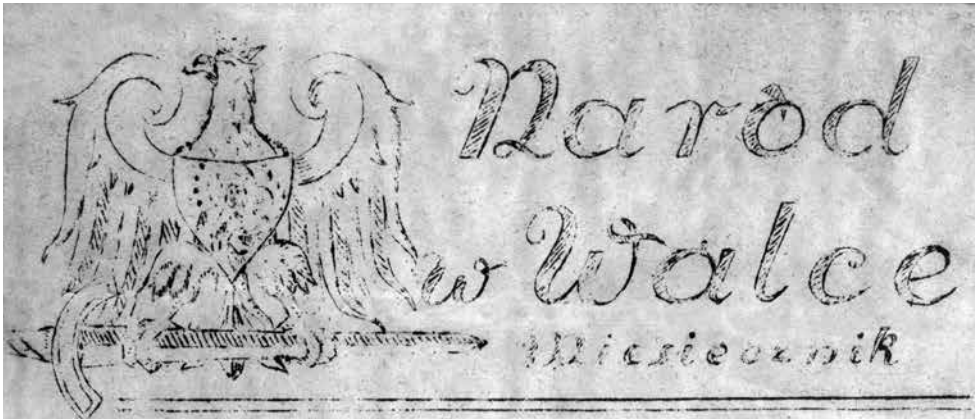 Naród
w Walce
Miesiecznik